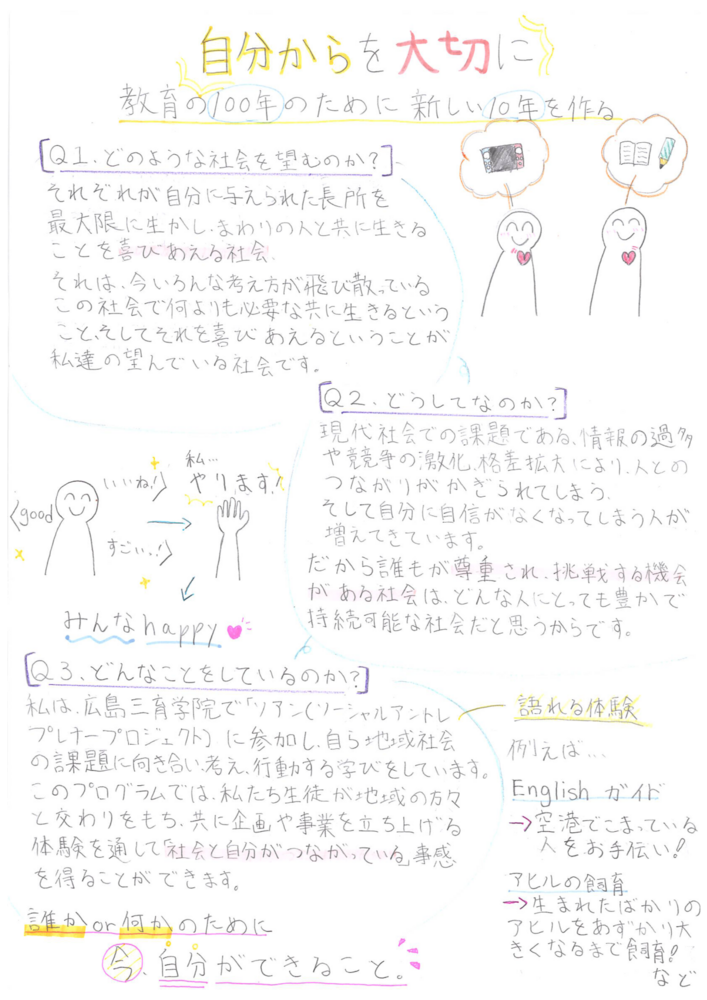 自分からを大切に
教育の100年のために新しい10年を作る
[Q1.どのような社会を望むのか?]
それぞれが自分に与えられた長所を
最大限に生かし、まわりの人と共に生きる
ことを喜びあえる社会、
それは、今いろんな考え方が飛び散っている
この社会で何よりも必要な共に生きるという
こと、そしてそれを喜びあえるということが
私達の望んでいる社会です。
[Q2.どうしてなのか?]
現代社会での課題である、情報の過多
や競争の激化、格差拡大により、人との
つながりがかぎられてしまう、
そして自分に自信がなくなってしまう人が
増えてきています。
だから誰もが尊重され、挑戦する機会
がある社会は、どんな人にとっても豊かで
持続可能な社会だと思うからです。
good
いいね!
すごいっ!
私…
やります!
みんなhappy
[Q3.どんなことをしているのか?]
私は、広島三育学院で「ソアン(ソーシャルアントレ
プレナープロジェクト)に参加し、自ら地域社会
の課題に向き合い、考え、行動する学びをしています。
このプログラムでは、私たち生徒が地域の方々
と交わりをもち、共に企画や事業を立ち上げる
体験を通して「社会と自分がつながっている」事感
を得ることができます。
語れる体験
例えば…
English ガイド
→空港でこまっている
人をお手伝い!
アヒルの飼育
→生まれたばかりの
アヒルをあずかり大
きくなるまで飼育!
など
誰かor何かのために
今、自分ができること。